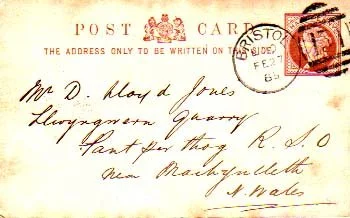 POST CARD
THE ADDRESS ONLY TO BE WRITTEN ON THIS SIDE.
BRISTOL
FE 27
Mr D. Lloyd Jones
Llwyngwern Quarry
Pant per thog R. S. O
near Machynlleth
N. Wales